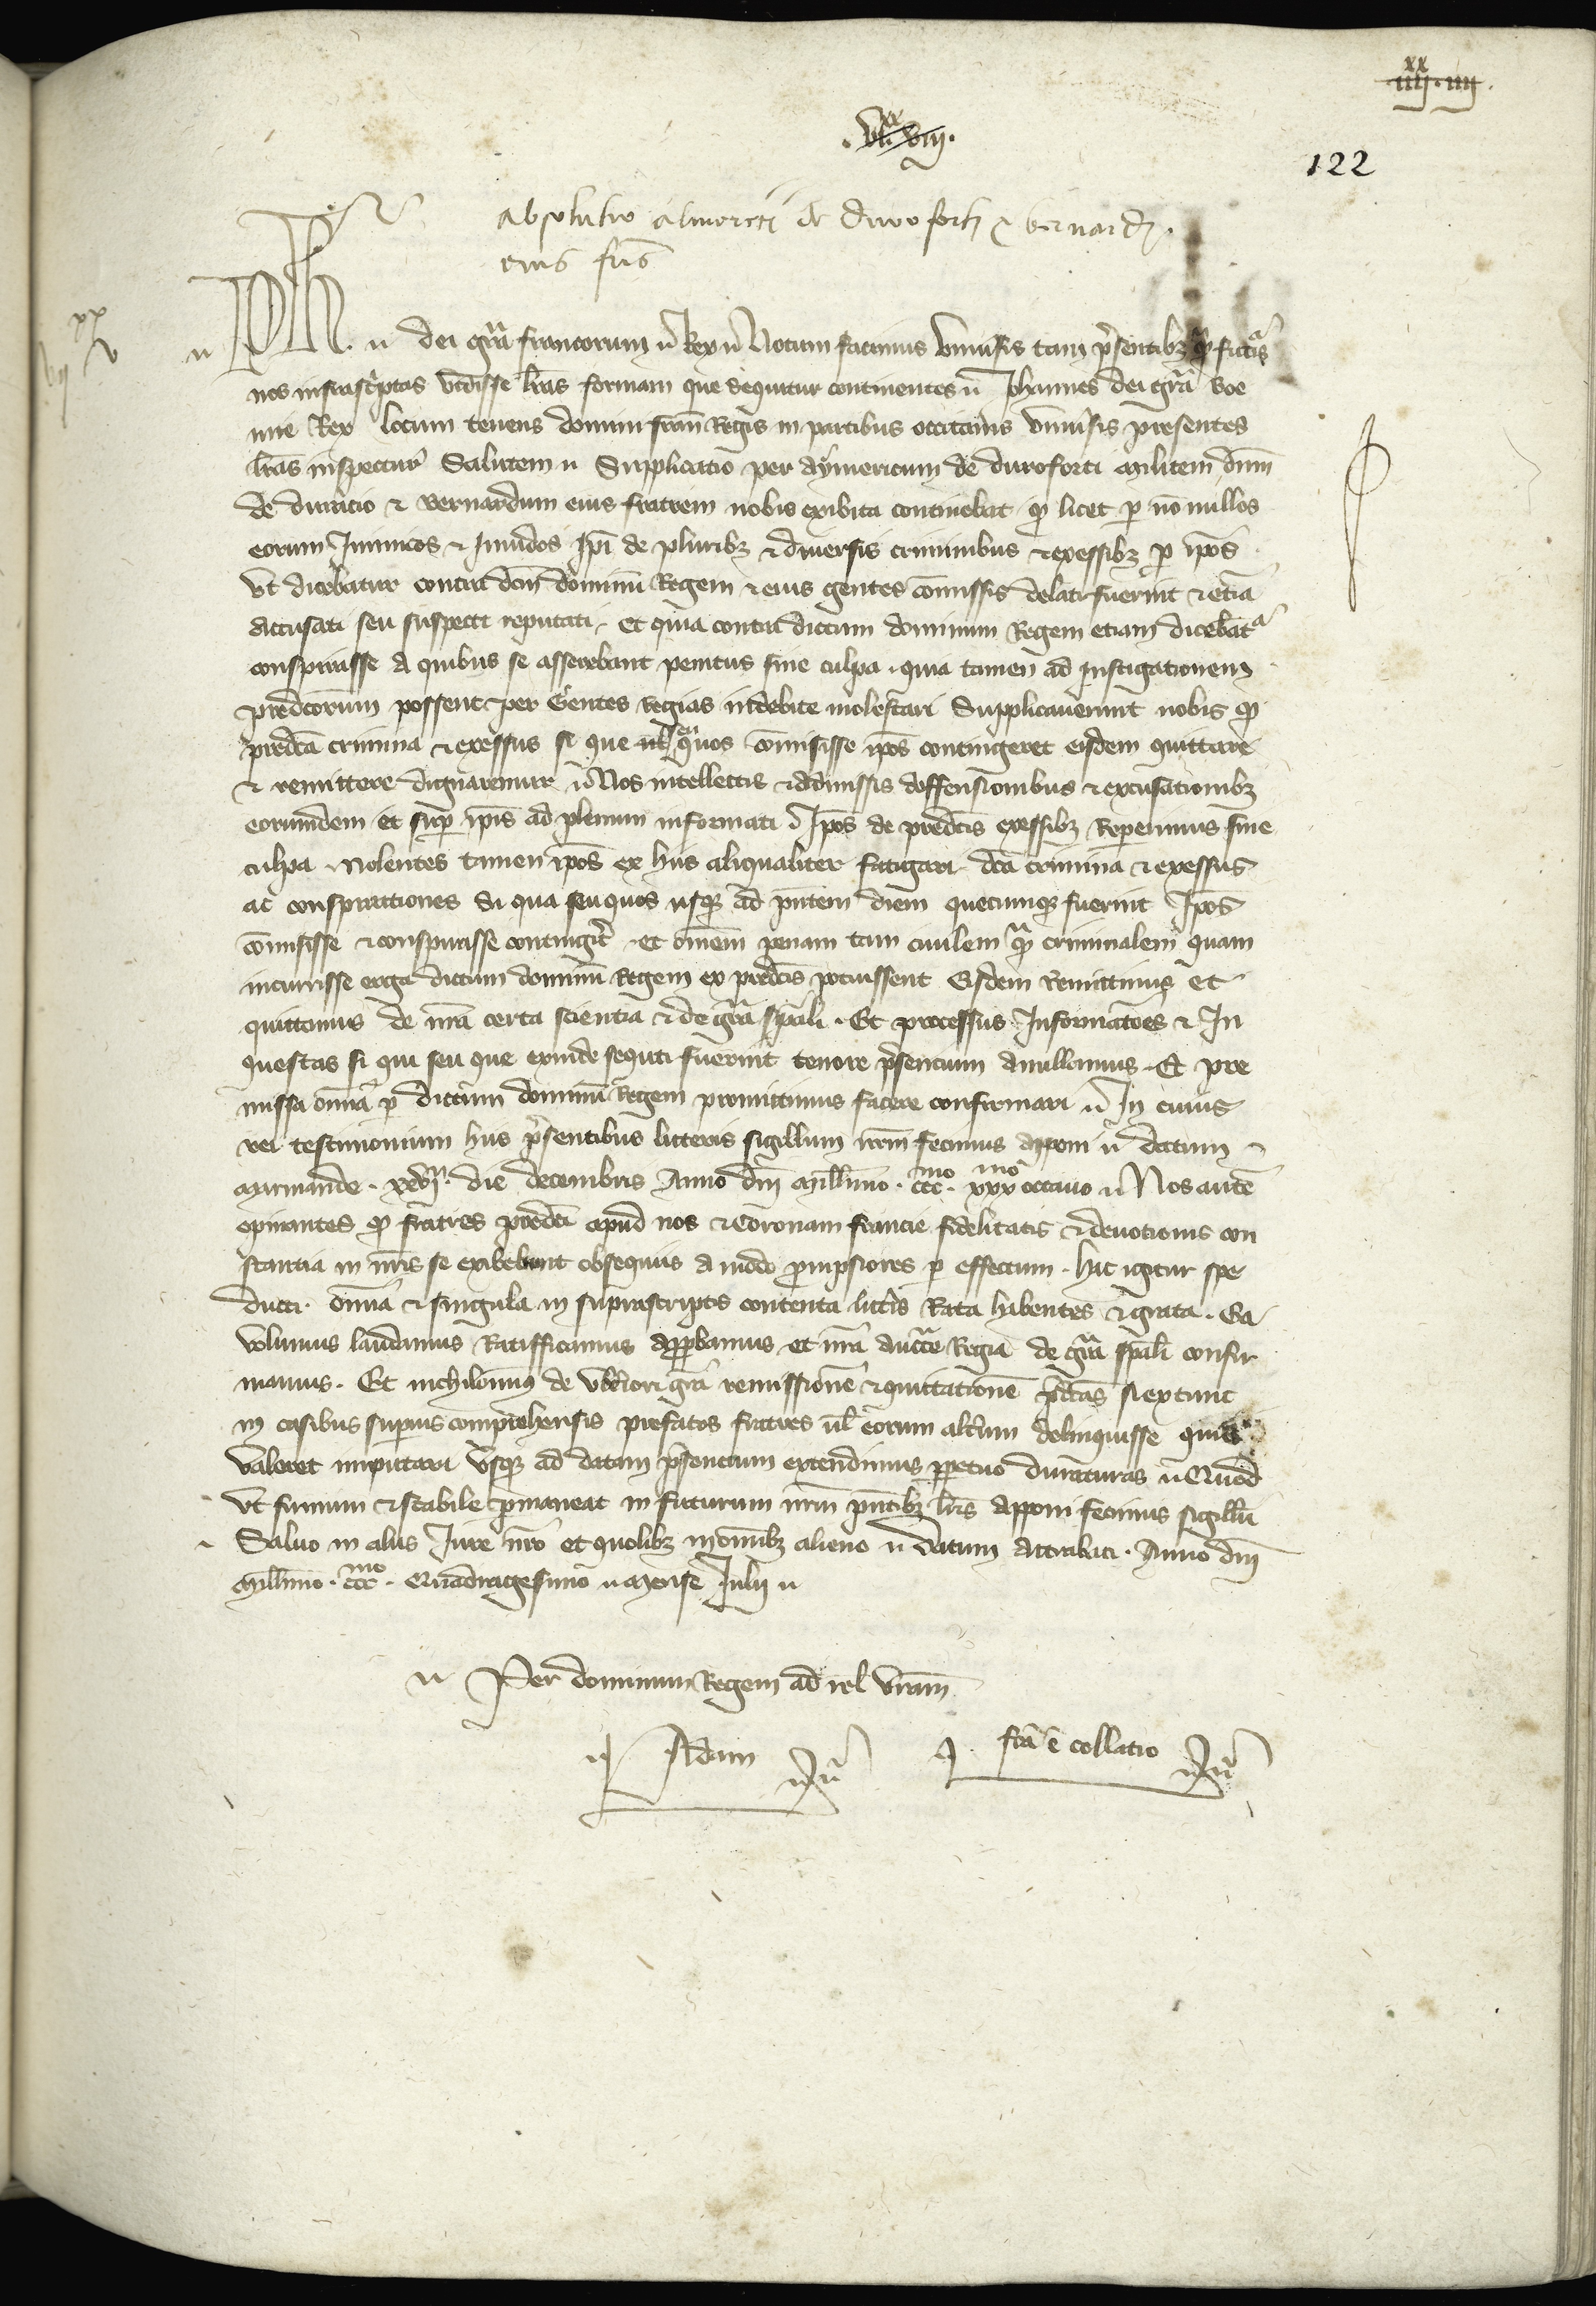 xx
iiij. iiij.
xx
.vi. viij.
122
absolutio almerici de duro forti & bernardi
eius fris
xx
vij v
Ph. dei gra francorum Rex Notum facimus Universis tam presentibz qm futuris
nos infrascriptas vidisse lras formam que sequitur continentes Johannes dei gra Boe
mie Rex locum tenens domini fran Regis in partibus occitanis Universis presentes
lras inspecturis Salutem Supplicatio per Aymericum de duroforti militem dnm
de duracio & Bernardum eius fratrem nobis exibita continebat qd licet p no nullos
eorum Inimicos & Inuidos Ipi de pluribz & diuersis criminibus & exessibz p ipos
Vt dicebatur contra dcm dominu Regem & eius gentes comissis delati fuerint & etia
accusati seu suspecti reputati et quia contra dictum dominum Regem etiam dicebatr
conspirasse A quibus se asserebant penitus sine culpa . quia tamen ad Instigationem
predcorum possent per Gentes regias indebite molestari Supplicauerunt nobis qd
predca crimina & exessus si que uel quos comisisse ipos contingeret eisdem quittare
& remittere dignaremur Nos intellectis & admissis deffensionibus & excusationibz
eorumdem et sup ipis ad plenum informati Ipos de predcis exessibz Reperimus sine
culpa Nolentes tamen ipos ex hiis aliqualiter fatigari dca crimina & exessus
ac conspirationes Si qua seu quos usqz ad pntem diem quecumqz fuerint Ipos
comisisse & conspirasse contingerit et omem penam tam ciuilem qm criminalem quam
incurrisse erga dictum dominu Regem ex predcis potuissent Eisdem Remittimus et
quittamus de nra certa scientia & de gra spali . Et processus Informatoes & In
questas si qui seu que exinde sequti fuerint tenore presencium Anullamus . Et pre
missa omia p dictum dominu Regem promittimus facere confirmari In cuius
rei testimonium hiis presentibus litteris sigillum nrm fecimus apponi datum
Marmande . xxvij. die decembris Anno dni Millimo . ccc mo . xxx mo octauo Nos aute
opinantes qd fratres predci apud nos & Coronam francie fidelitatis & deuotionis con
stantia in nris se exibebunt obsequiis A modo prompsiores p effectum . hac igitur spe
ducti . omia & singula in suprascriptis contenta litteris Rata habentes & grata . Ea
volumus laudamus Ratifficamus Approbamus et nra Auctte Regia de gra spali confir
mamus . Et nichilominus de vberiori gra remissione & quittatione predcas si extunc
in casibus superius comprehensis prefatos fratres ul eorum alterum delinquisse quis
Valeret imputari Vsqz ad datam presencium extendimus perpetuo duraturas Quod
Vt firmum & stabile permaneat in futurum nrm pntibz lris Apponi fecimus sigillu
Saluo in aliis Iure nro et quolibz in omibz alieno Datum Attrabati . Anno dni
Millimo . ccc mo . Quadragesimo mense Julii
Per dominum Regem ad rel vram
Adam
fca e collatio